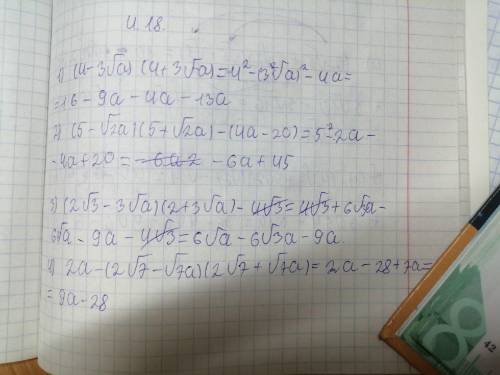 И. 18.
1) (4-3√a)(4+3√a)=4²-(3²√a)²-4a=
=16-9a-4a-13a
2) (5-√2a)(5+√2a)-(4a-20)=5²-2a-
-4a+20= -6a2 -6a+45
3) (2√3-3√a)(2+3√a)-4√3=4√3+6√3a-
6√a-9a-4√3=6√a-6√3a-9a.
4) 2a-(2√7-√7a)(2√7+√7a)=2a-28+7a=
=9a-28
42